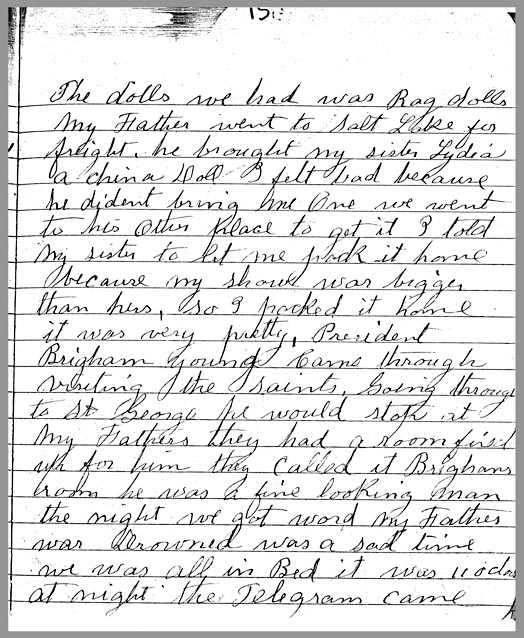 The dolls we had was Rag dolls
My Father went to Salt Lake for
freight. he brought my sister Lydia
a china Doll I felt bad because
he dident bring me One we went
to his Other place to get it I told
my sister to let me pack it home
because my shawl was bigger
than hers, so I packed it home
it was very pretty, President
Brigham young Came through
visiting the saints, Going through
to St George he would stop at
My Fathers they had a room fixed
up for him they Called it Brighams
room he was a fine looking man
the night we got word my Father
was Drowned was a sad time
we was all in Bed it was 11 oclo
at night the Telegram came